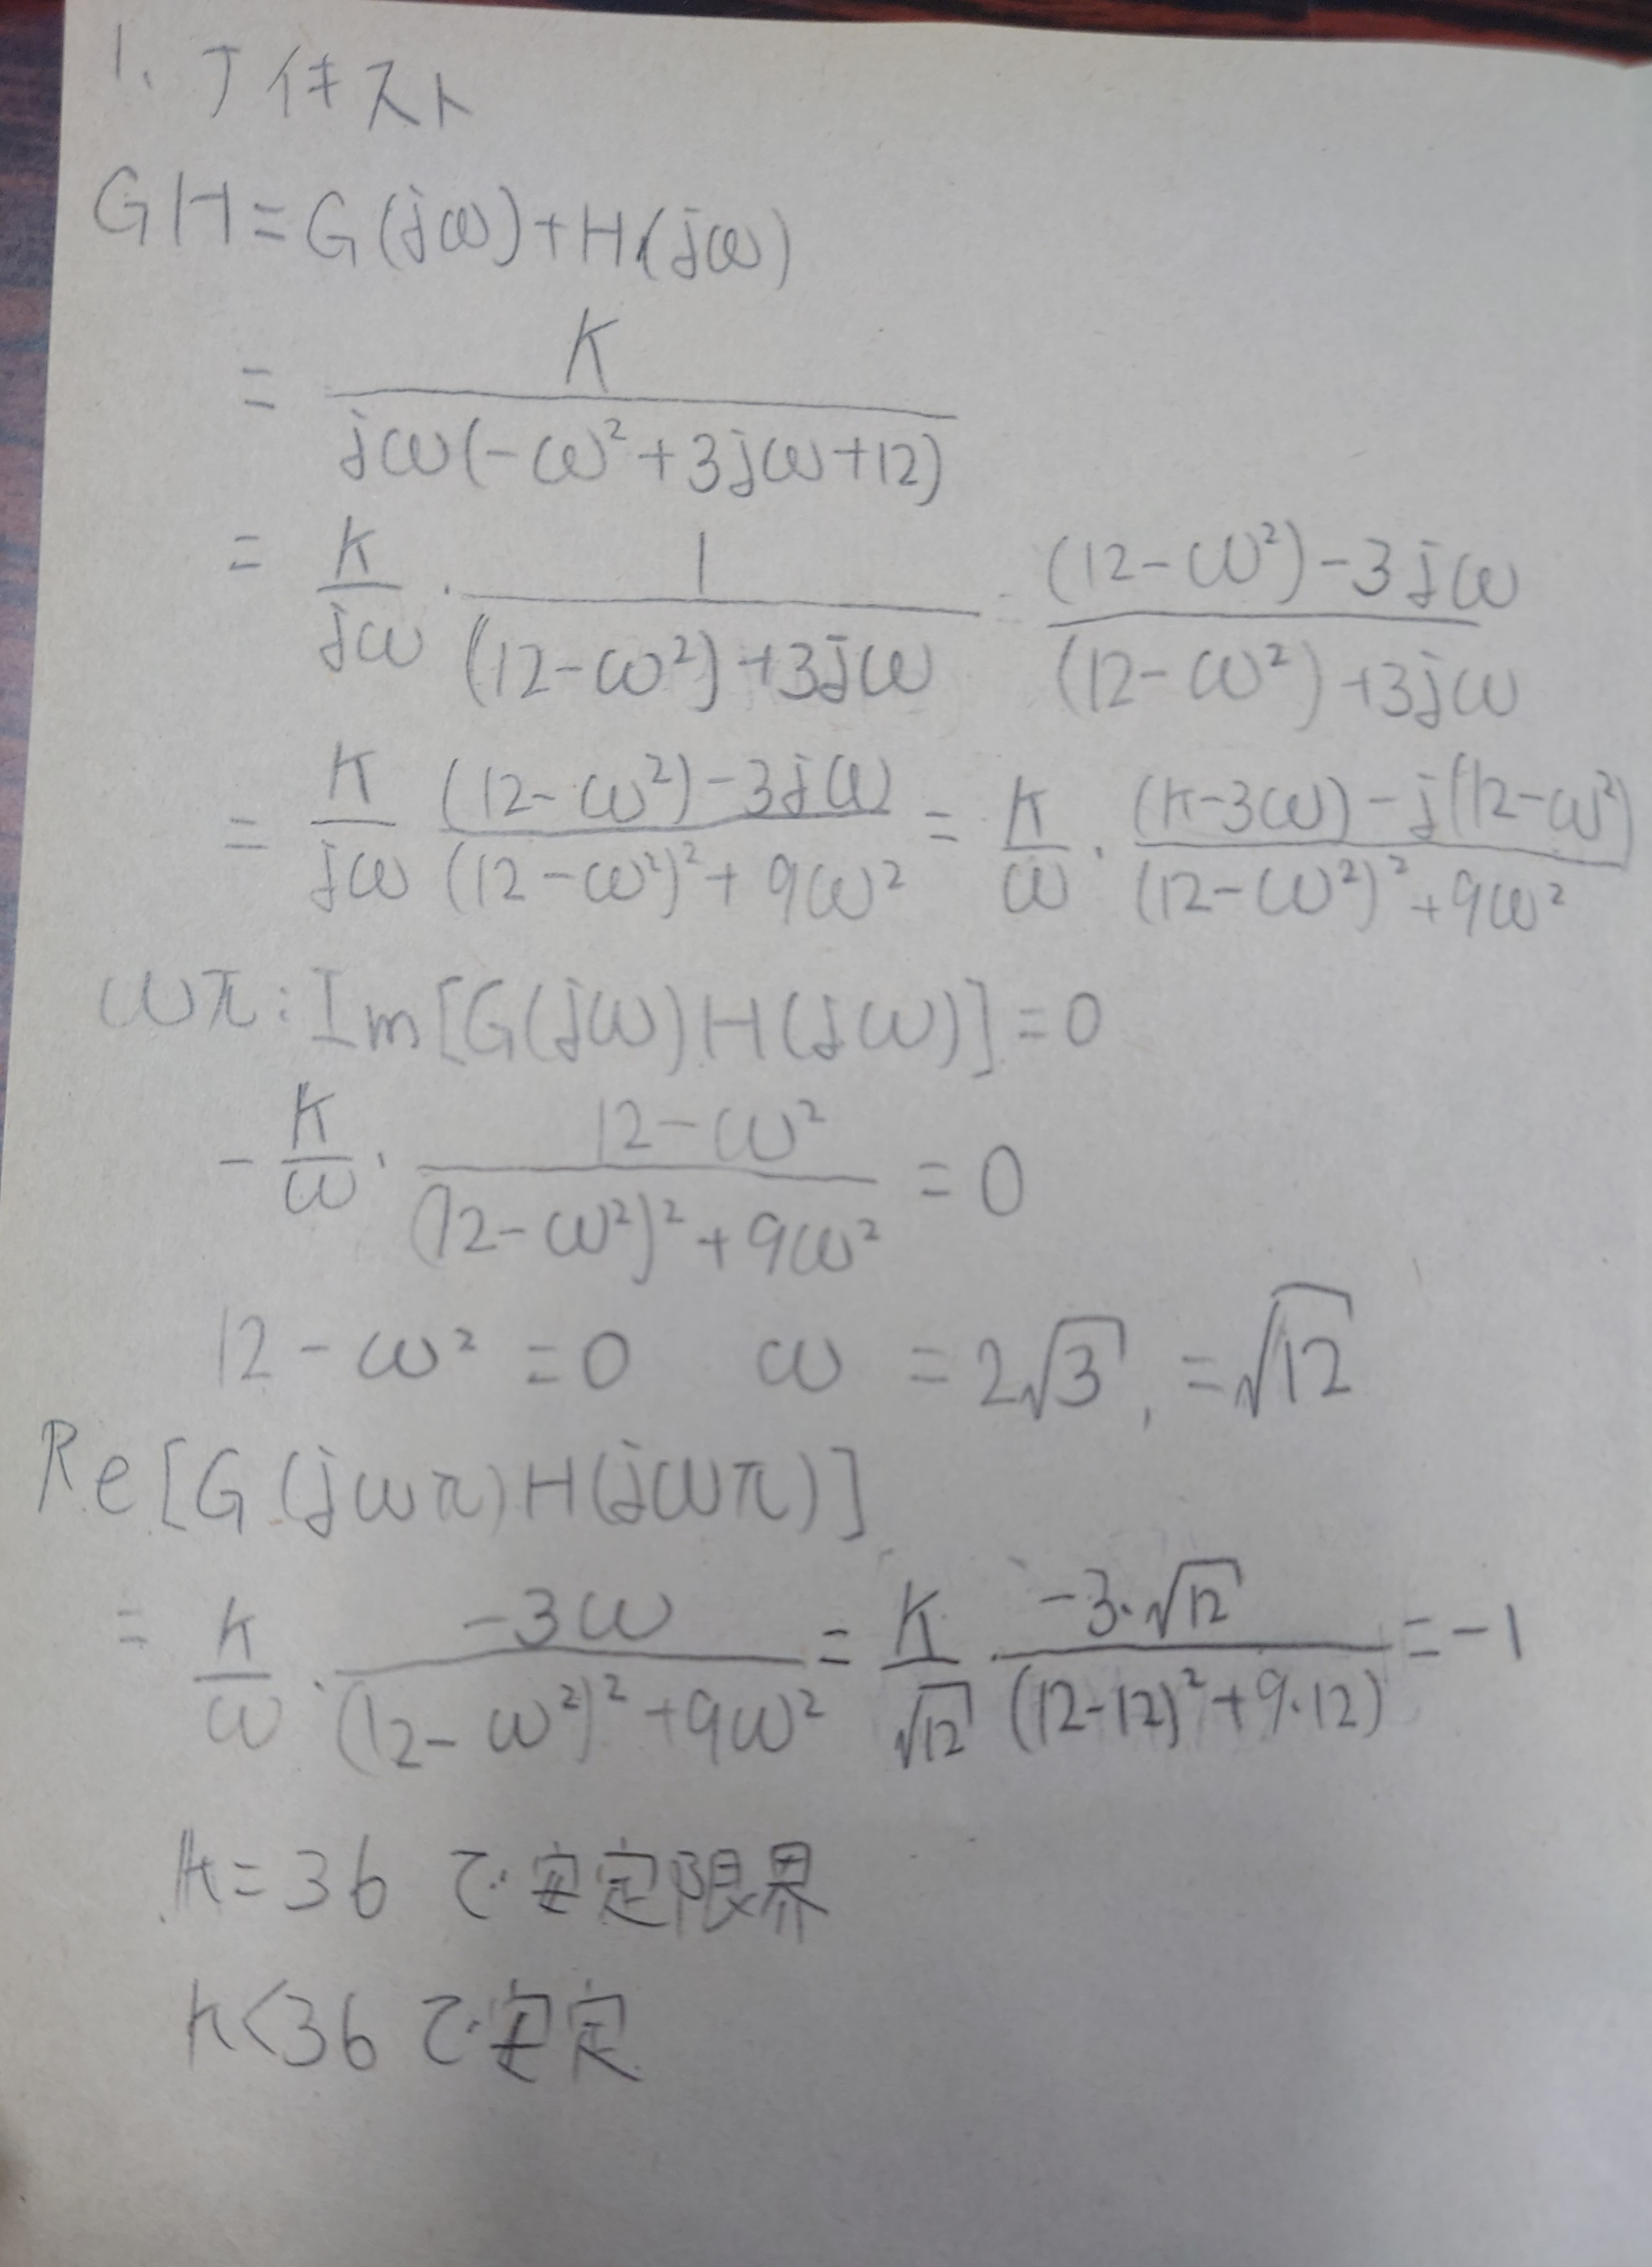 1. ナイキスト
GH = G(jω)+H(jω)
= K / jω(-ω²+3jω+12)
= K/jω · 1/((12-ω²)+3jω) · ((12-ω²)-3jω)/((12-ω²)+3jω)
= K/jω ((12-ω²)-3jω)/((12-ω²)²+9ω²) = K/ω · ((K-3ω)-j(12-ω²))/((12-ω²)²+9ω²)
ωπ: Im[G(jω)H(jω)]=0
-K/ω · (12-ω²)/((12-ω²)²+9ω²) = 0
12-ω²=0 ω=2√3, =√12
Re[G(jωπ)H(jωπ)]
= K/ω · -3ω/((12-ω²)²+9ω²) = K/√12 · -3·√12/((12-12)²+9·12) = -1
K=36 で安定限界
K<36 で安定